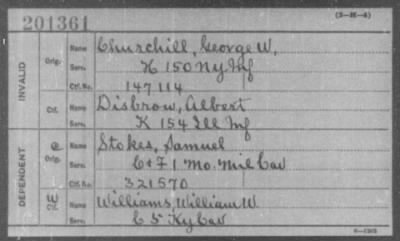 201361
(3-H-4)
INVALID
Orig.
Name Churchill, George W.
Serv. K 150 NY Inf
Ctf. No. 147114
Ctf.
Name Disbrow, Albert
Serv. K 154 Ill Inf
DEPENDENT
Orig.
Name Stokes, Samuel
Serv. C & F 1 Mo. Mil Cav
Ctf. No. 321570
Name Williams, William W
Serv. C 5 Ky Cav